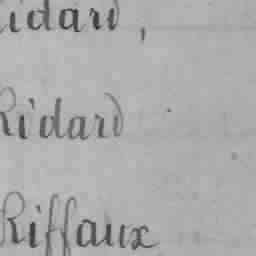 Ridard,
Ridard
Riffaux